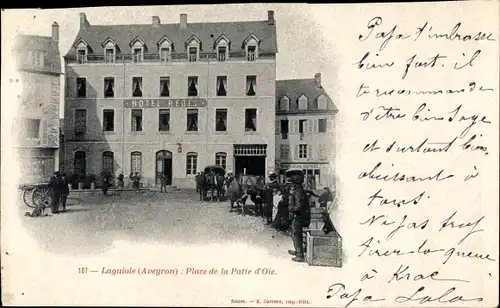 HOTEL REGIS
Papa t'embrasse
bien fort. il
te recommande
d'être bien sage
et surtout bien
obéissant à
tous.
N'e pas trop
tirer la queue
à Krac
Papa Lolo
187 — Laguiole (Aveyron) : Place de la Patte d'Oie.
Rodez. — E. Carrère, imp.-édit.